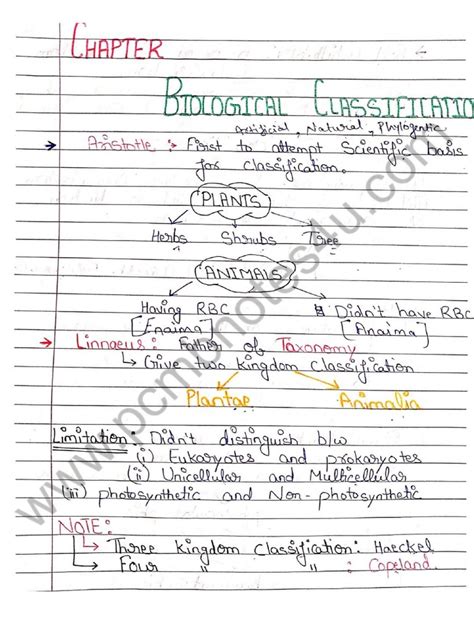 CHAPTER
BIOLOGICAL CLASSIFICATIO
Artificial, Natural, Phylogentic
→ Aristotle :- First to attempt Scientific basis
for classification.
PLANTS
Herbs Shrubs Tree
ANIMALS
Having RBC Didn't have RBC
[Enaima] [Anaima]
→ Linnaeus: Father of Taxonomy
↳ Give two kingdom classification
Plantae Animalia
Limitation: Didn't distinguish b/w
(i) Eukaryotes and prokaryotes
(ii) Unicellular and Multicellular
(iii) photosynthetic and Non-photosynthetic
NOTE:
↳ Three kingdom classification: Haeckel
↳ Four " " : Copeland.
www.pcmbnotes4u.com